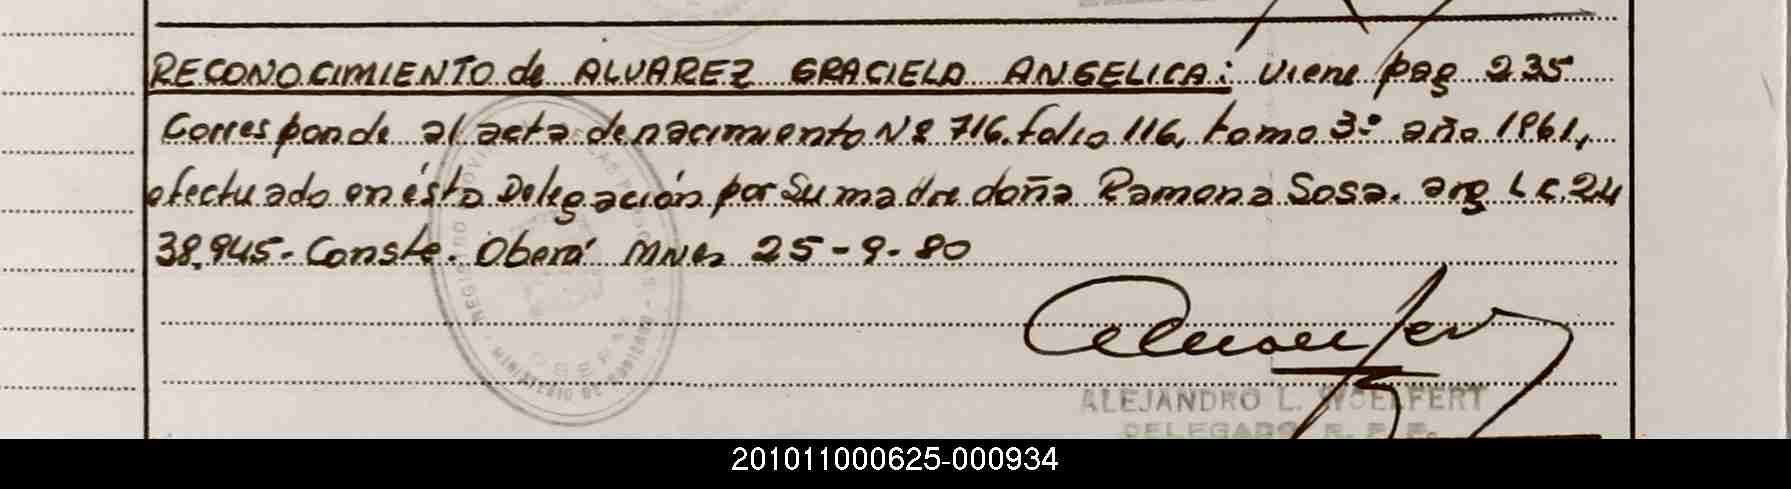 RECONOCIMIENTO de ALVAREZ GRACIELA ANGELICA: viene pag 235
Corresponde al acta de nacimiento Nº 716. folio 116, tomo 3º año 1961,
efectuado en ésta Delegación por su madre doña Ramona Sosa. arg L.C. 24
38.945- Conste. Oberá Mnes 25-9-80
ALEJANDRO L. WOELFERT
DELEGADO R. P. P.
201011000625-000934